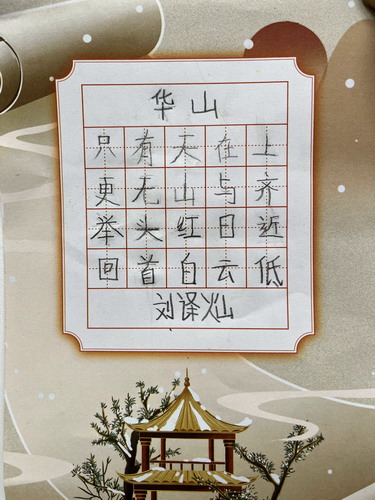 华山
只有天在上
更无山与齐
举头红日近
回首自云低
刘译灿